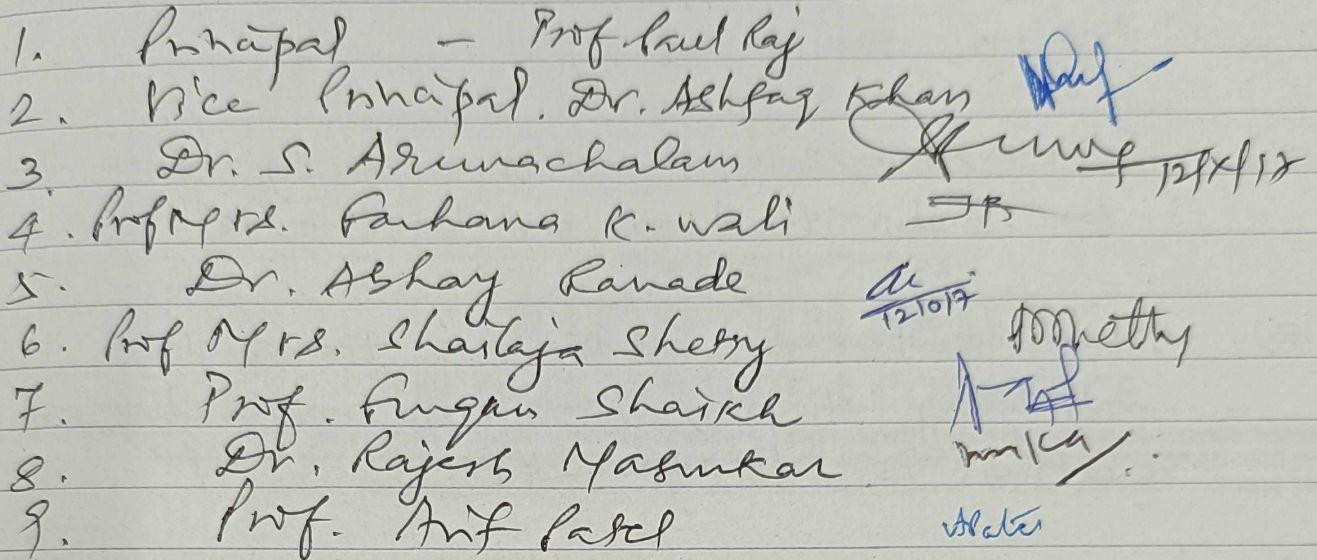 1. Principal - Prof Paul Raj
2. Vice Principal. Dr. Ashfaq Khan
3. Dr. S. Arunachalam 12/X/17
4. Prof Mrs. Farhana K. Wali
5. Dr. Abhay Ranade 121017
6. Prof Mrs. Shailaja Shetty
7. Prof. Furqan Shaikh
8. Dr. Rajesh Masurkar
9. Prof. Arif Patel